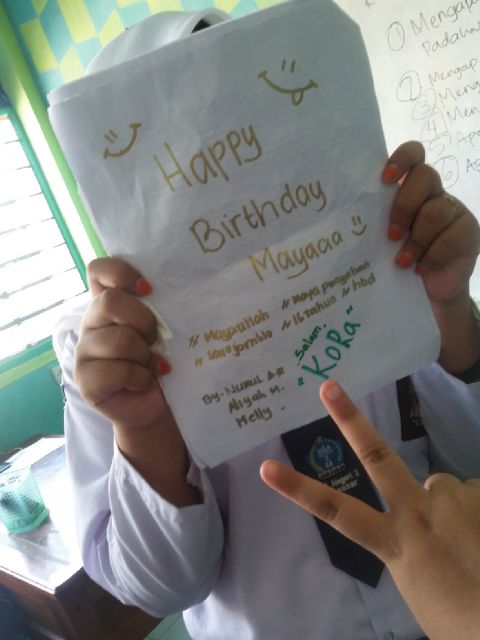 Happy
Birthday
Mayaaa
# Mayaullah # Maya pongahan
# sarojomblo # 16 tahun # hbd
By. Nurul A.#
Aliyah M.
Melly.
Salam.
"KORa"
① Mengapa
Padahal
② Mengap
③ Meng
④ Men
5
⑥
Negeri 3